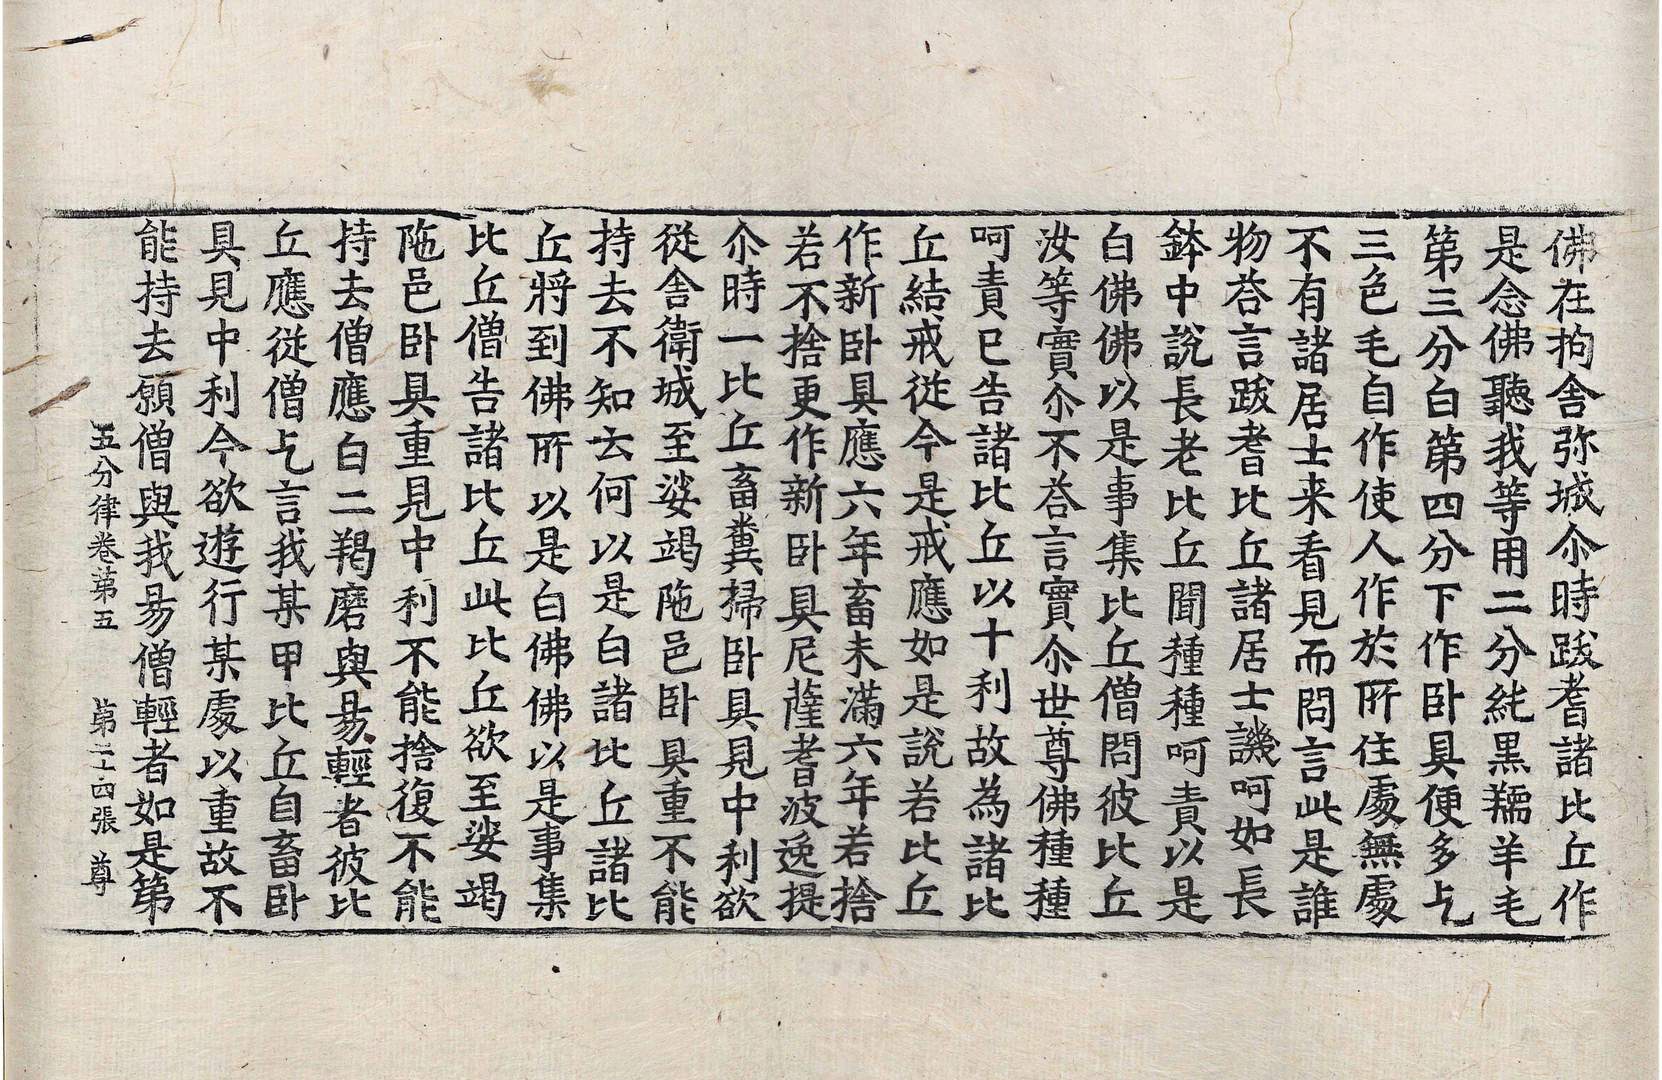 佛在拘舍弥城尒時跋耆諸比丘作
是念佛聽我等用二分純黒羺羊毛
第三分白第四分下作卧具便多乞
三色毛自作使人作於所住處無處
不有諸居士来看見而問言此是誰
物荅言跋耆比丘諸居士譏呵如長
鉢中說長老比丘聞種種呵責以是
白佛佛以是事集比丘僧問彼比丘
汝等實尒不荅言實尒世尊佛種種
呵責已告諸比丘以十利故為諸比
丘結戒從今是戒應如是說若比丘
作新卧具應六年畜未滿六年若捨
若不捨更作新卧具尼薩耆波逸提
尒時一比丘畜糞掃卧具見中利欲
從舍衛城至娑竭陁邑卧具重不能
持去不知云何以是白諸比丘諸比
丘將到佛所以是白佛佛以是事集
比丘僧告諸比丘此比丘欲至娑竭
陁邑卧具重見中利不能捨復不能
持去僧應白二羯磨與昜輕者彼比
丘應從僧乞言我某甲比丘自畜卧
具見中利今欲遊行某處以重故不
能持去願僧與我昜僧輕者如是第
五分律卷第五 第二十四張 尊